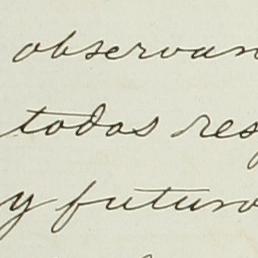 observan
todos res
y futuro